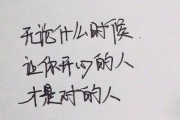 无论什么时候
让你开心的人
才是对的人